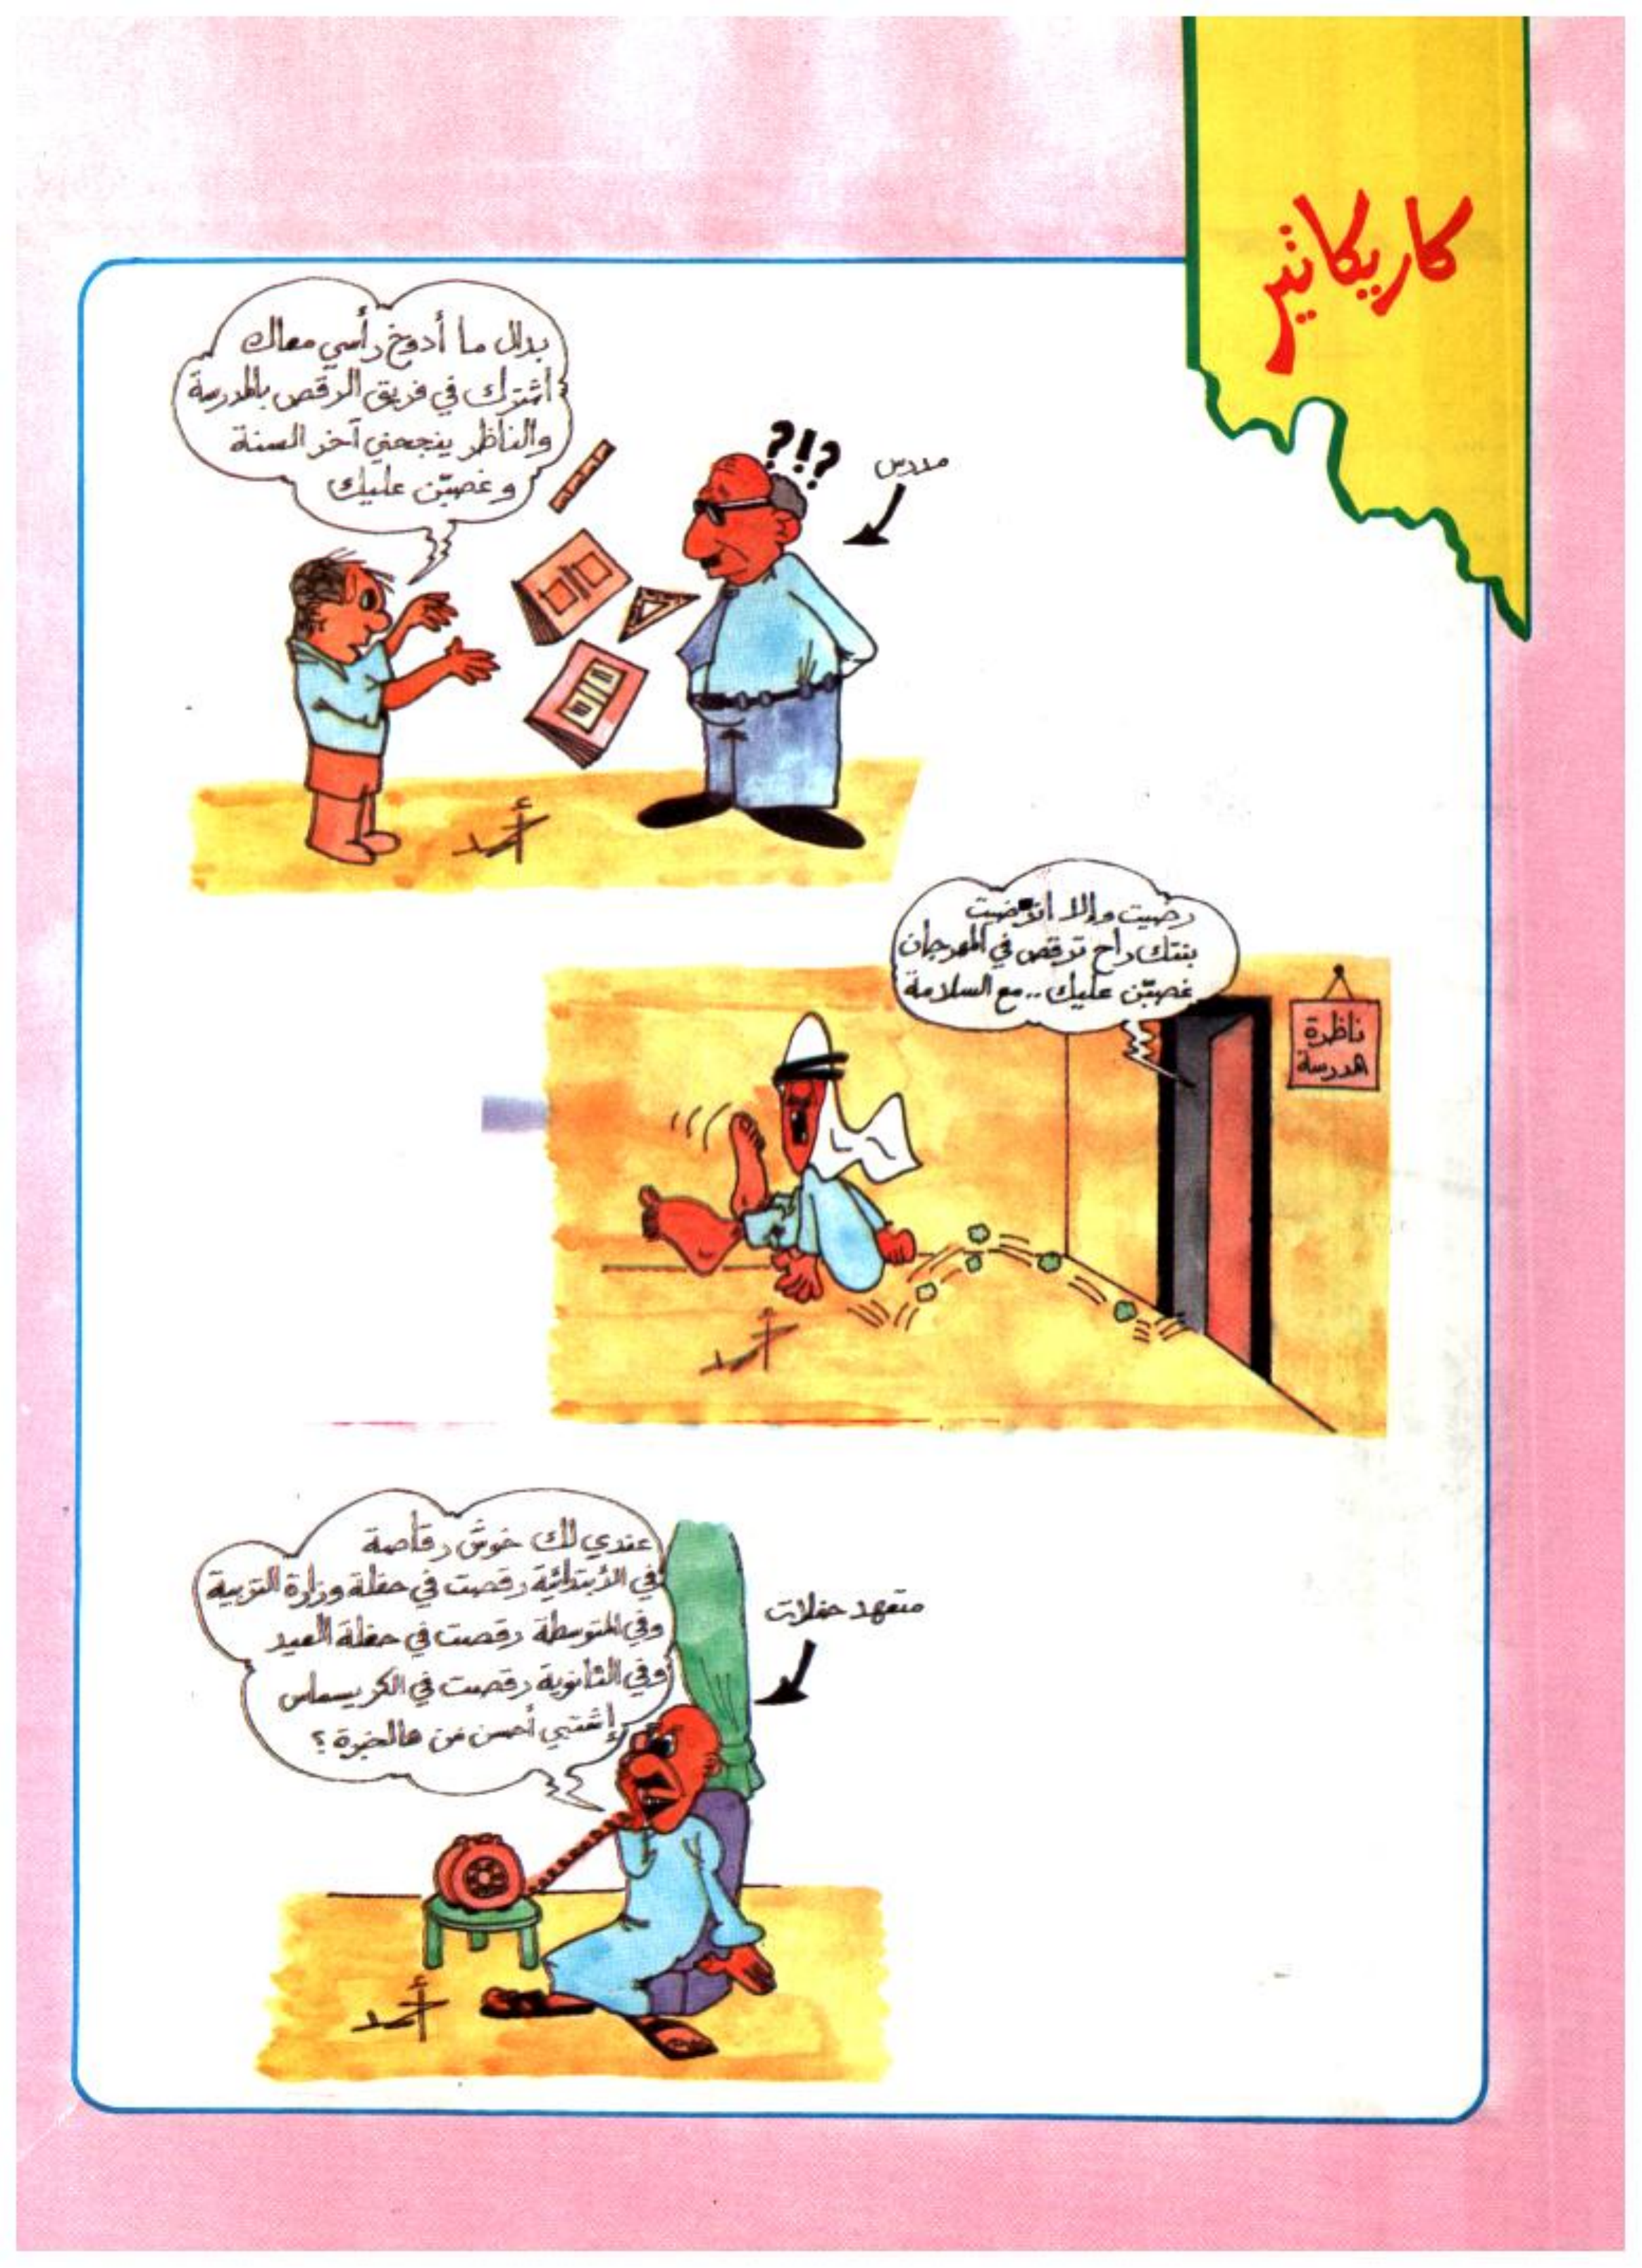 كاريكاتير
بدال ما أدوخ رأسي معاك
اشترك في فريق الرقص بالمدرسة
والناظر ينجحني آخر السنة
وغصبٍّن عليك
?!?
مدرس
أحمد
رضيت وإلا انرضيت
بنتك راح ترقص في المهرجان
غصبٍّن عليك .. مع السلامة
ناظرة
مدرسة
أحمد
عندي لك خوش رقاصة
في الأبتدائية رقصت في حفلة وزارة التربية
وفي المتوسطة رقصت في حفلة العيد
وفي الثانوية رقصت في الكريسماس
إشتبي أحسن من هالخبرة ؟
متعهد حفلات
أحمد